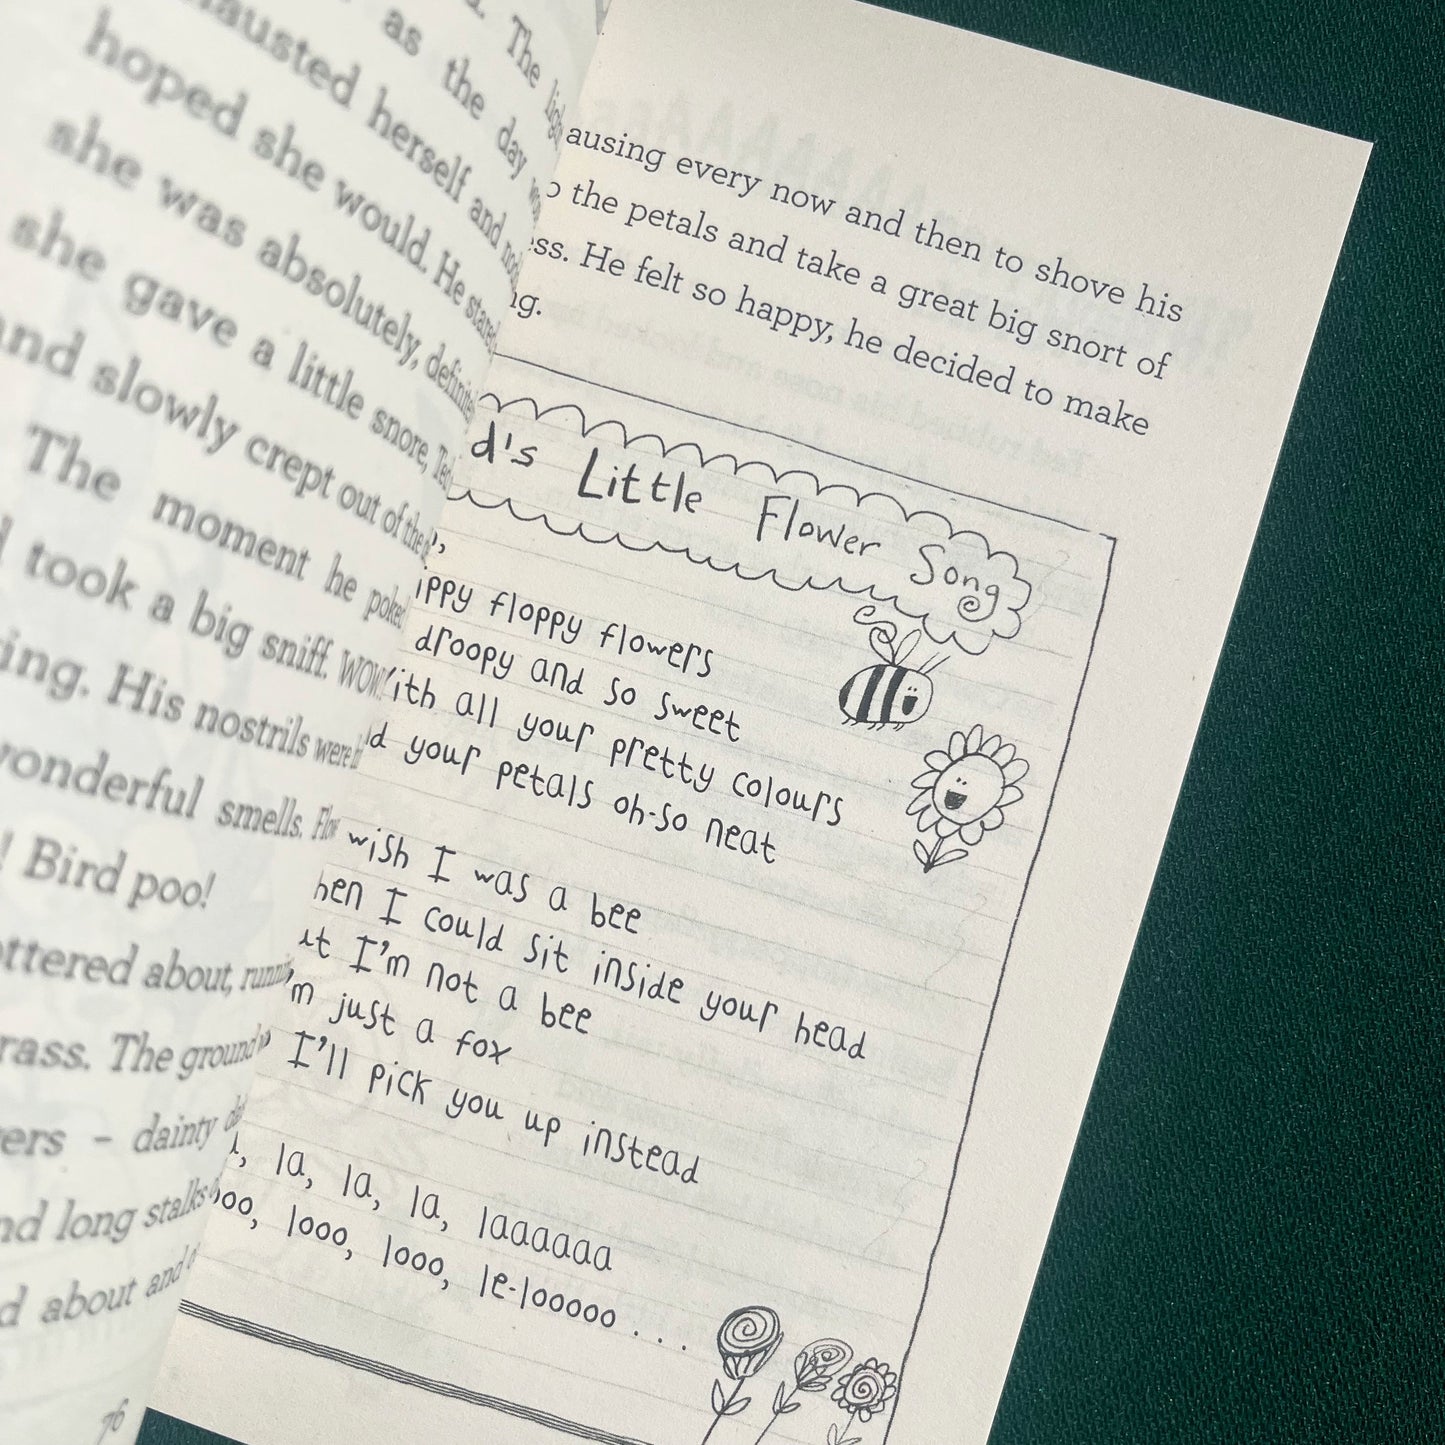 . The
as the day
hausted herself and
hoped she would. He stared
she was absolutely,
she gave a little snore,
and slowly crept out of the
The moment he poked
took a big sniff. WOW!
ing. His nostrils were
wonderful smells.
! Bird poo!
ottered about,
rass. The ground
ers – dainty
nd long stalks
d about and
76
ausing every now and then to shove his
o the petals and take a great big snort of
ess. He felt so happy, he decided to make
ng.
d's Little Flower Song
ippy floppy flowers
droopy and so sweet
ith all your pretty colours
d your petals oh-so neat
wish I was a bee
hen I could sit inside your head
ut I'm not a bee
'm just a fox
I'll pick you up instead
la, la, la, laaaaaa
ooo, looo, looo, le-looooo . . .